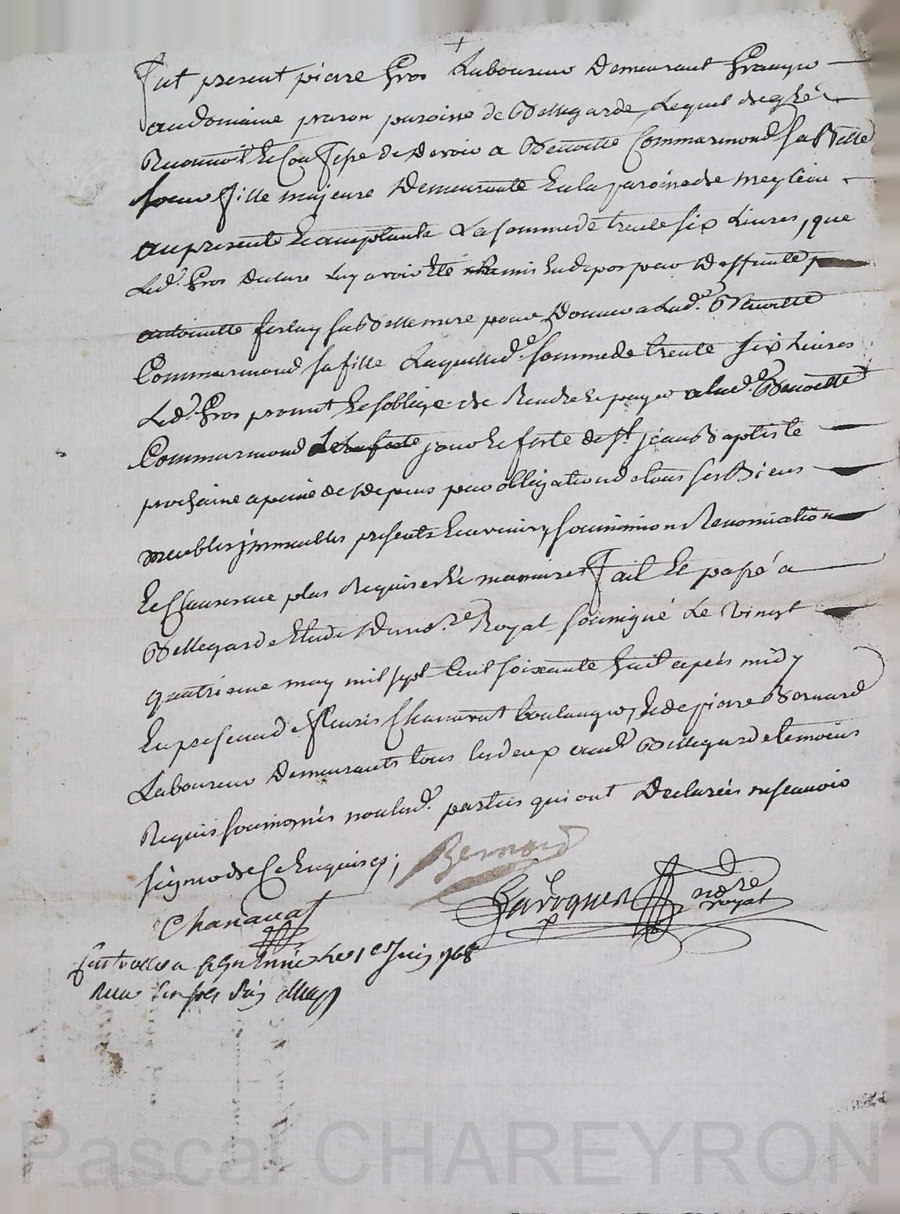 Fut present pierre Gros Laboureur Demeurant Granger
au domaine praron paroisse de Bellegarde Lequel de gré a
Reconnu Et Confessé de devoir a Benoitte Commarmond sa Belle
soeur fille majeure Demeurante En la paroisse de meylieu
au presente Et acceptante La somme de trente six Livres, que
Led. Gros declare Luy avoir Eté remis En depos par Deffunte
antoinette ferlay sa Belle mere pour Donner a Lad.e Benoitte
Commarmond sa fille Laquelle d.e somme de trente six Livres
Led. Gros promet Et soblige de Rendre Et payer a lad.e Benoitte
Commarmond jour Et feste de St jean Baptiste
prochaine a peine de tous depens par obligation de tous ses Biens
meubles jmmeubles presents Et avenirs, soumissions Renonciations
Et Clauses au plus Requises Et necessaires Fait Et passé a
Bellegarde Etude du no.re Royal soussigné Le vingt
quatrieme may mil sept Cent soixante huit apres midy
En presence de fleuris Chanavat boulanger, Et de pierre Bernard
Laboureur Demeurants tous les deux aud. Bellegarde temoins
Requis soussignés non lesd. parties qui ont Declarées ne scavoir
signer de Ce Enquises ;
Bernard
Chanavat
no.re royal
Controllé a le 1er Juin 1768
Reçu
Pascal CHAREYRON